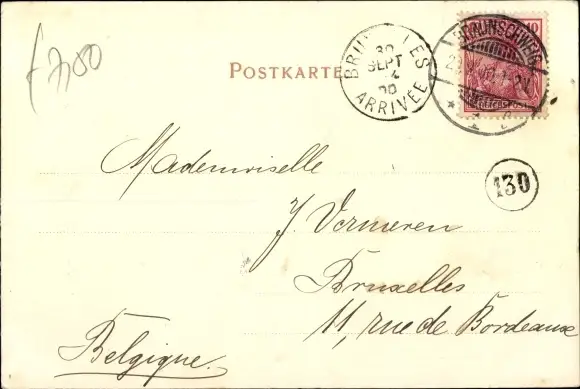 f 7,50
POSTKARTE
BRUXELLES
30
SEPT
ARRIVÉE
BRAUNSCHWEIG
10
130
Mademoiselle
J. Vermeren
Bruxelles
11, rue de Bordeaux
Belgique.